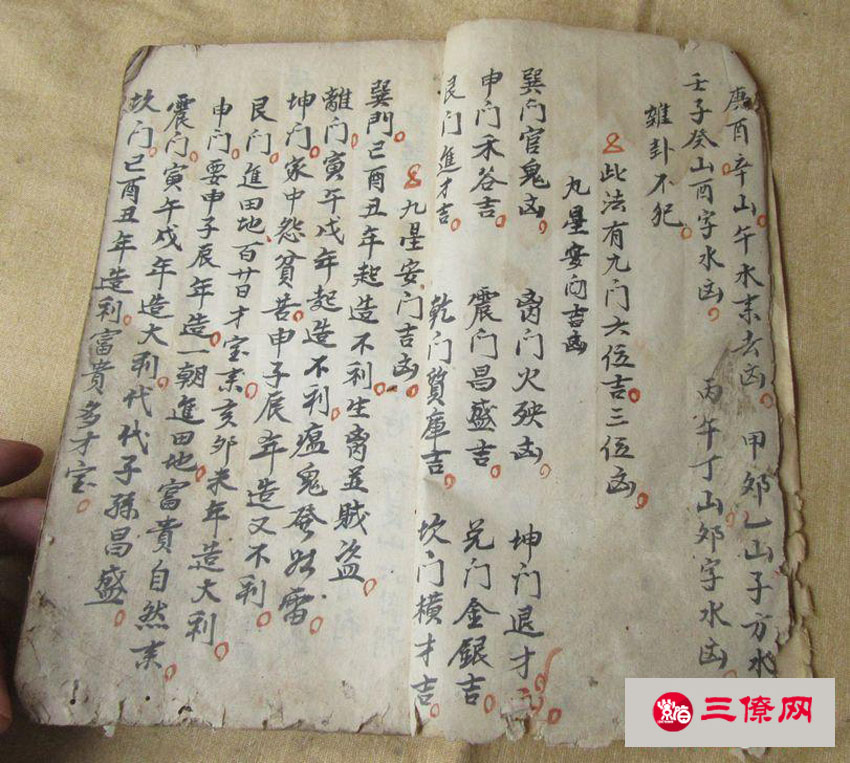 庚酉辛山午水来去凶 甲夘乙山子方水
壬子癸山酉字水凶 丙午丁山夘字水凶
雜卦不犯
此法有九门六位吉三位凶
九星安门吉凶
巽门官鬼凶 离门火殃凶 坤门退才
申门禾谷吉 震门昌盛吉 兑门金銀吉
艮门進才吉 乾门貭庫吉 坎门横才吉
九星安门吉凶
巽門己酉丑年起造不利生离並贼盗
離门寅午戌年起造不利瘟鬼發如雷
坤门家中怨貧苦申子辰年造又不利
艮门進田地百廿日才宝来亥夘未年造大利
申门要申子辰年造一朝進田地富貴自然来
震门寅午戌年造大利代代子孫昌盛
坎门己酉丑年造利富貴多才宝
三僚网